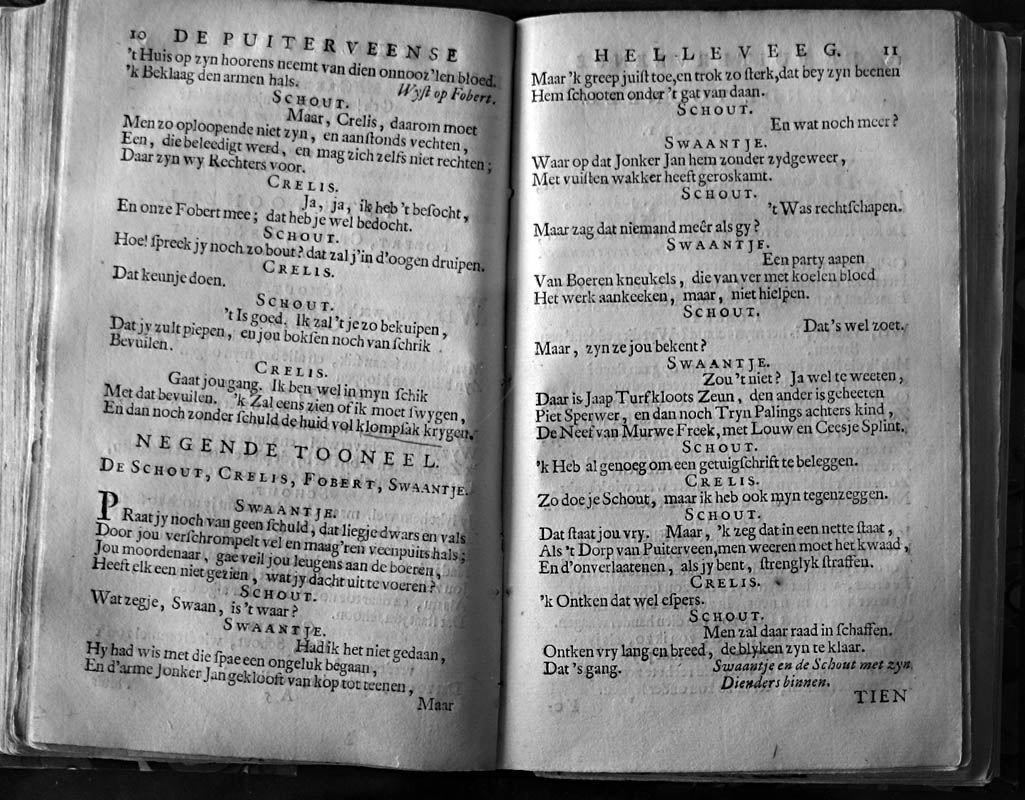 10 DE PUITERVEENSE
't Huis op zyn hoorens neemt van dien onnooz'len bloed.
'k Beklaag den armen hals. Wyſt op Fobert.
SCHOUT.
Maar, Crelis, daarom moet
Men zo oploopende niet zyn, en aanſtonds vechten,
Een, die beleedigt werd, en mag zich zelfs niet rechten;
Daar zyn wy Rechters voor.
CRELIS.
Ja, ja, ik heb 't beſocht,
En onze Fobert mee; dat heb je wel bedocht.
SCHOUT.
Hoe! ſpreek jy noch zo bout? dat zal j'in d'oogen druipen.
CRELIS.
Dat kennje doen.
SCHOUT.
't Is goed. Ik zal 't je zo bekuipen,
Dat jy zult piepen, en jou bokſen noch van ſchrik
Bevuilen.
CRELIS.
Gaat jou gang. Ik ben wel in myn ſchik
Met dat bevuilen. 'k Zal eens zien of ik moet ſwygen,
En dan noch zonder ſchuld de huid vol klompſak krygen.
NEGENDE TOONEEL.
DE SCHOUT, CRELIS, FOBERT, SWAANTJE.
SWAANTJE.
PRaat jy noch van geen ſchuld, dat liegje dwars en vals
Door jou verſchrompelt vel en maag'ren veenpuits hals;
Jou moordenaar, gae veil jou leugens aan de boeren,
Heeft elk een niet gezien, wat jy dacht uit te voeren?
SCHOUT.
Wat zegje, Swaan, is 't waar?
SWAANTJE.
Had ik het niet gedaan,
Hy had wis met die ſpae een ongeluk begaan,
En d'arme Jonker Jan geklooft van kop tot teenen,
Maar
HELLEVEEG. 11
Maar 'k greep juiſt toe, en trok zo ſterk, dat bey zyn beenen
Hem ſchooten onder 't gat van daan.
SCHOUT.
En wat noch meer?
SWAANTJE.
Waar op dat Jonker Jan hem zonder zydgeweer,
Met vuiſten wakker heeft geroskamt.
SCHOUT.
't Was rechtſchapen.
Maar zag dat niemand meêr als gy?
SWAANTJE.
Een party aapen
Van Boeren kneukels, die van ver met koelen bloed
Het werk aankeeken, maar, niet hielpen.
SCHOUT.
Dat's wel zoet.
Maar, zyn ze jou bekent?
SWAANTJE.
Zou 't niet? Ja wel te weeten,
Daar is Jaap Turfkloots Zeun, den ander is geheeten
Piet Sperwer, en dan noch Tryn Palings achters kind,
De Neef van Murwe Freek, met Louw en Ceesje Splint.
SCHOUT.
'k Heb al genoeg om een getuigſchrift te beleggen.
CRELIS.
Zo doe je Schout, maar ik heb ook myn tegenzeggen.
SCHOUT.
Dat ſtaat jou vry. Maar, 'k zeg dat in een nette ſtaat,
Als 't Dorp van Puiterveen, men weeren moet het kwaad,
En d'onverlaatenen, als jy bent, ſtrenglyk ſtraffen.
CRELIS.
'k Ontken dat wel eſpers.
SCHOUT.
Men zal daar raad in ſchaffen.
Ontken vry lang en breed, de blyken zyn te klaar.
Dat's gang. Swaantje en de Schout met zyn
Dienders binnen.
TIEN